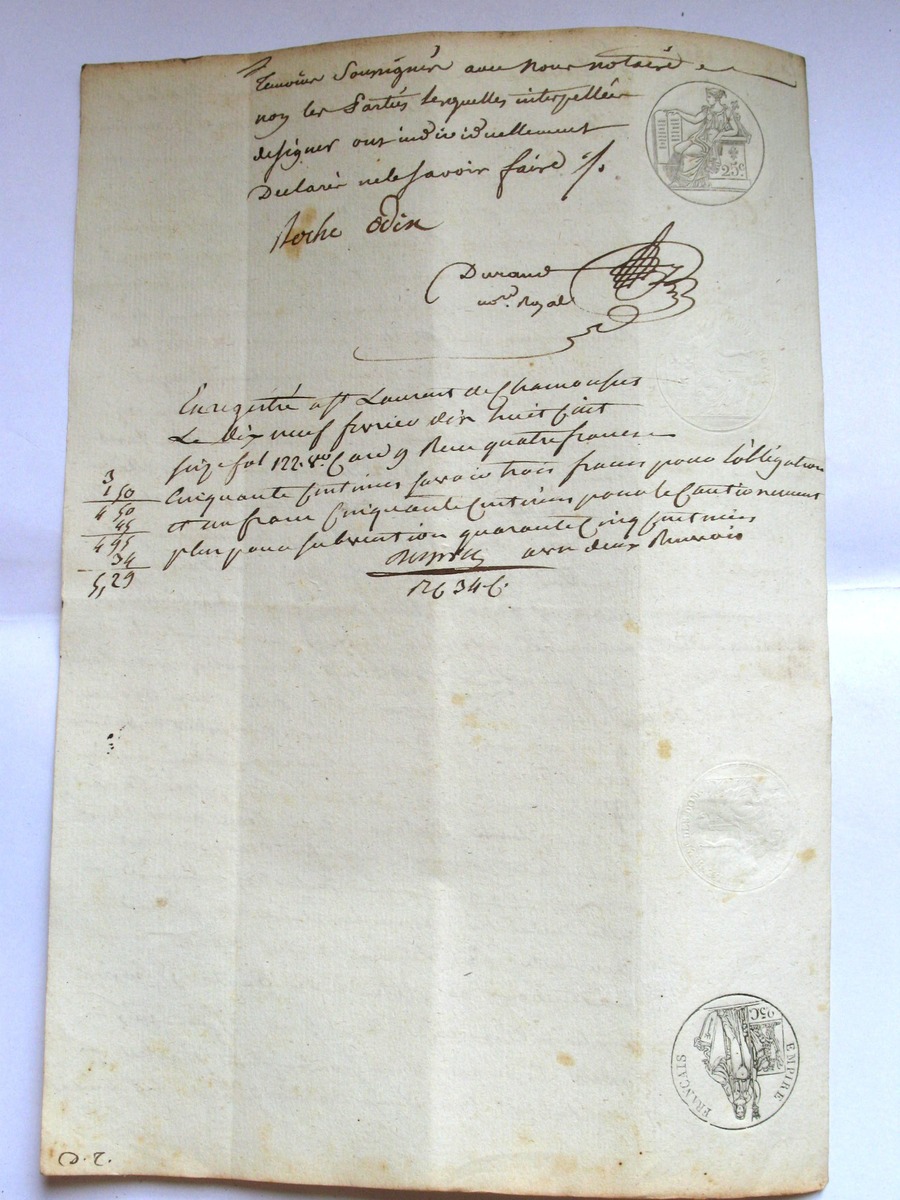 Temoins Soussignés avec Nous notaire e
non les Parties lesquelles interpellées
de signer ont individuellement
Declaré ne le Savoir faire ·/.
25c
Roche Odin
Durand
no.re Royal
Enregistré a St Laurent de Chamousset
Le dix neuf fevrier dix huit Cent
Seize fol 122 vo Case 9 Recu quatre francs
Cinquante Centimes Savoir trois francs pour l'obligation
et un franc Cinquante Centimes pour le Cautionnement
plus pour Subvention quarante Cinq Centimes
avec deux Renvois
3
1 50
4 50
45
4 95
34
5,29
R 34 C.
EMPIRE
FRANÇAIS
25C